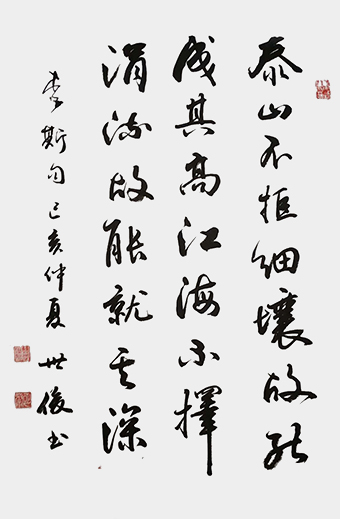 泰山不拒细壤故能
成其高江海不择
涓流故能就其深
李斯句己亥仲夏世俊书